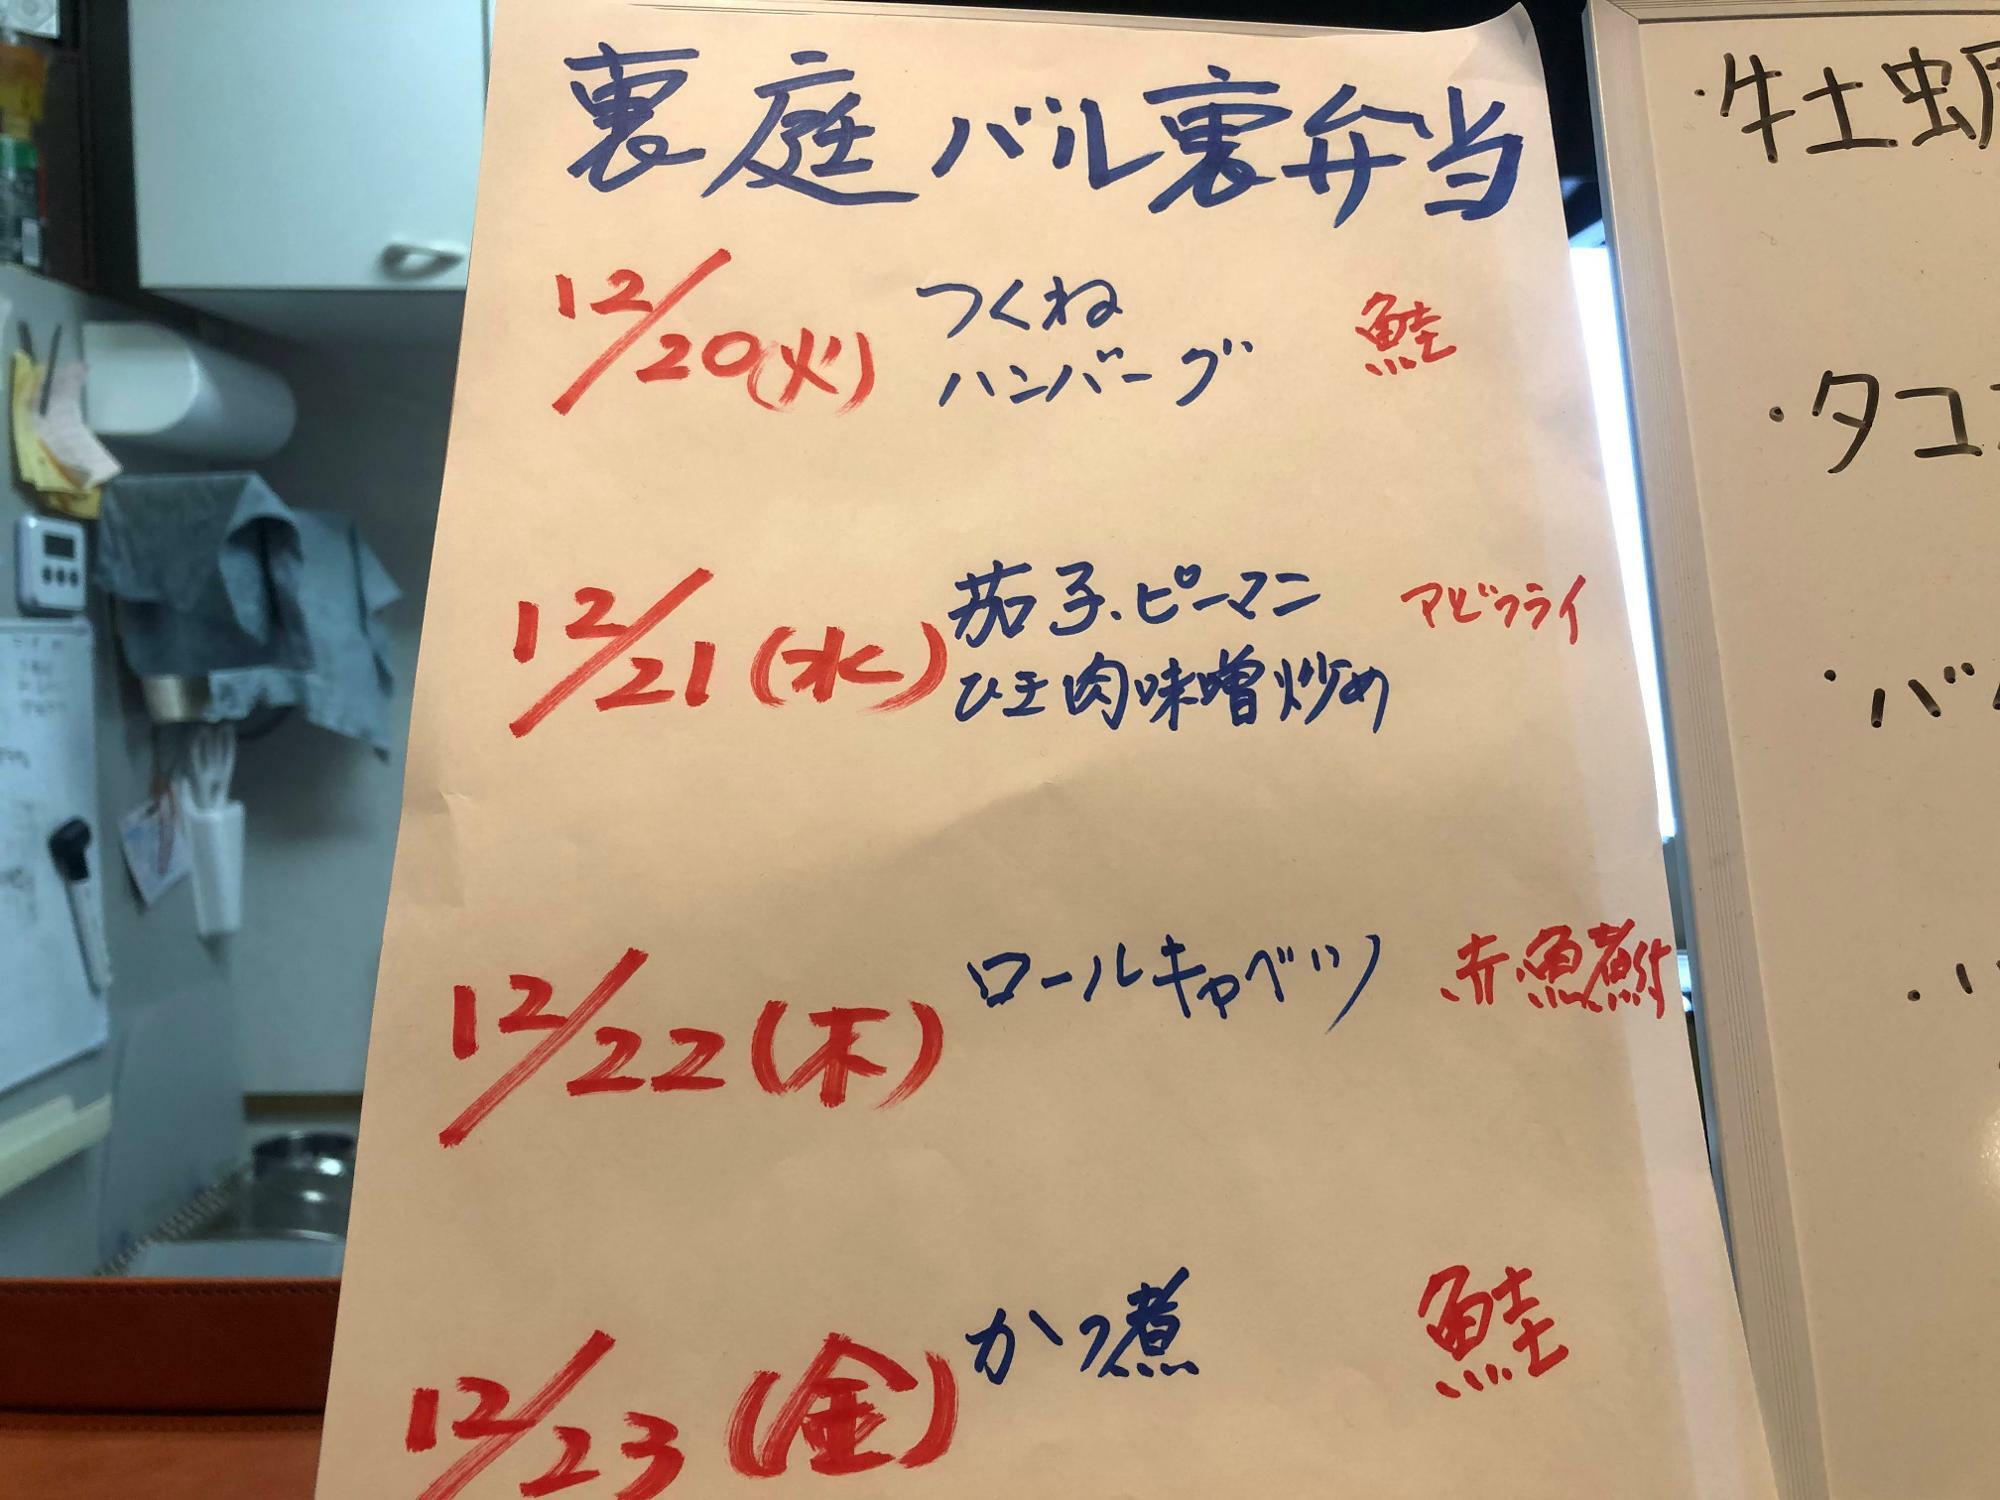 裏庭バル裏弁当
12/20(火) つくね 鮭
ハンバーグ
12/21(水) 茄子、ピーマン アジフライ
ひき肉味噌炒め
12/22(木) ロールキャベツ 赤魚煮付
12/23(金) かつ煮 鮭
・牡蛎
・タコ
・バ